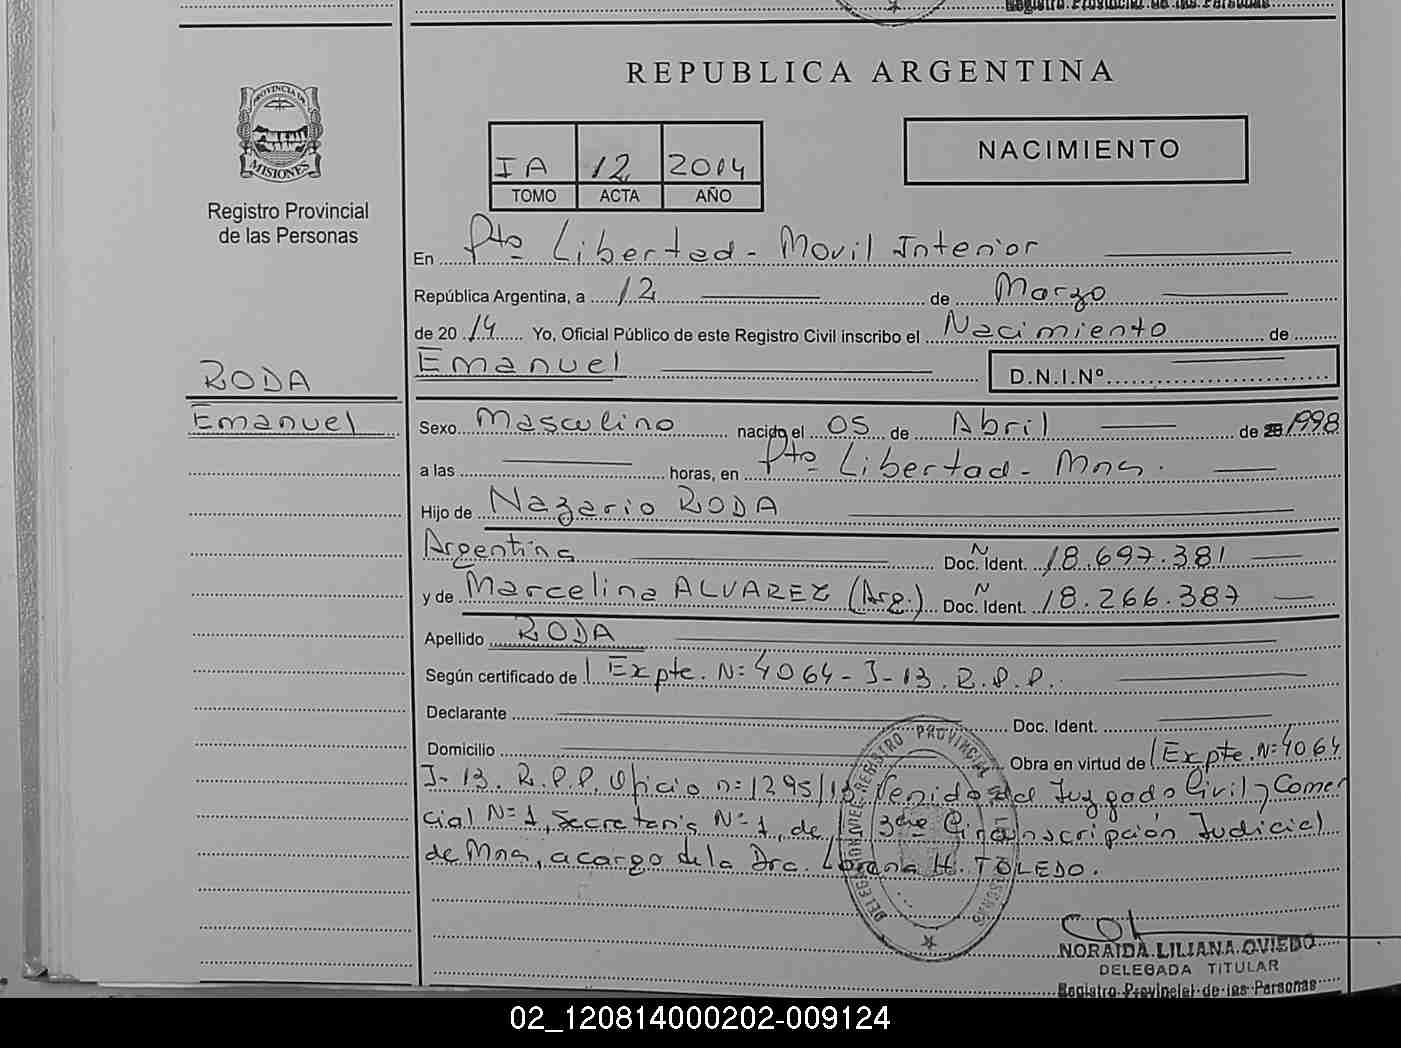 Registro Provincial de las Personas
REPUBLICA ARGENTINA
PROVINCIA DE
MISIONES
Registro Provincial
de las Personas
IA 12 2014
TOMO ACTA AÑO
NACIMIENTO
En Pto Libertad - Movil Interior
República Argentina, a 12 de Marzo
de 20 14 Yo, Oficial Público de este Registro Civil inscribo el Nacimiento de
Emanuel D.N.I.Nº
RODA
Emanuel
Sexo Masculino nacido el 05 de Abril de 1998
a las horas, en Pto Libertad - Mns.
Hijo de Nazario RODA
Argentina Doc. Ident. Nº 18.697.381
y de Marcelina ALVAREZ (Arg.) Doc. Ident. Nº 18.266.387
Apellido RODA
Según certificado de Expte. Nº 4064 - J - 13. R.P.P.
Declarante Doc. Ident.
Domicilio Obra en virtud de Expte. Nº 4064
J-13. R.P.P. Oficio nº 1295/13 Venido del Juzgado Civil y Comer
cial Nº 1, Secretaria Nº 1, de 3era Circunscripción Judicial
de Mns, a cargo de la Dra. Lorena H. TOLEDO.
REGISTRO PROVINCIAL
NORAIDA LILIANA OVIEDO
DELEGADA TITULAR
Registro Provincial de las Personas
02_120814000202-009124